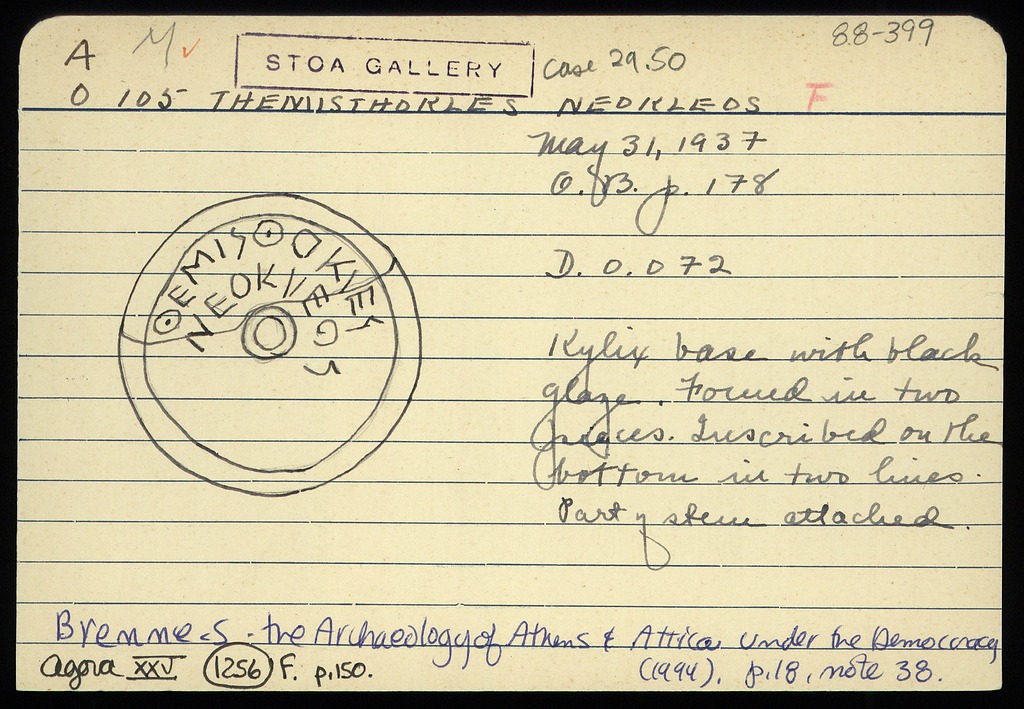 A
88-399
STOA GALLERY
Case 29.50
O 105 THEMISTHOKLES NEOKLEOS F
May 31, 1937
O.B. p. 178
D. 0.072
ΘEMISΘOKLES
NEOKLEOS
Kylix base with black
glaze. Found in two
pieces. Inscribed on the
bottom in two lines.
Part of stem attached.
Brenne, S. - the Archaeology of Athens & Attica under the Democracy
(1994), p.18, note 38.
Agora XXV 1256 F. p.150.